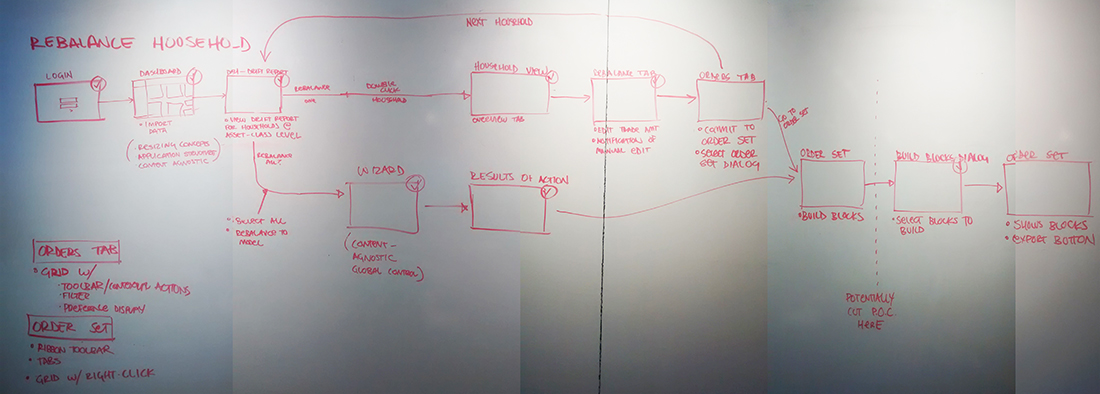 NEXT HOUSEHOLD
REBALANCE HOUSEHOLD
LOGIN
DASHBOARD
• IMPORT
DATA
(- RESIZING CONCEPTS
APPLICATION STRUCTURE
CONTENT AGNOSTIC)
DRIFT REPORT
• VIEW DRIFT REPORT
FOR HOUSEHOLDS @
ASSET-CLASS LEVEL
REBALANCE
ONE
DOUBLE
CLICK
HOUSEHOLD
HOUSEHOLD VIEW
OVERVIEW TAB
REBALANCE TAB
• EDIT TRADE AMT
• NOTIFICATION OF
MANUAL EDIT
ORDERS TAB
• COMMIT TO
ORDER SET
• SELECT ORDER
SET DIALOG
GO TO
ORDER SET
REBALANCE
"ALL"
• SELECT ALL
• REBALANCE TO
MODEL
WIZARD
(CONTENT-
AGNOSTIC
GLOBAL CONTROL)
RESULTS OF ACTION
ORDER SET
• BUILD BLOCKS
BUILD BLOCKS DIALOG
• SELECT BLOCKS TO
BUILD
ORDER SET
• SHOWS BLOCKS
• EXPORT BUTTON
POTENTIALLY
CUT P.O.C.
HERE
ORDERS TAB
• GRID W/
- TOOLBAR/CONTEXTUAL ACTIONS
- FILTER
- PREFERENCE DISPLAY
ORDER SET
• RIBBON TOOLBAR
• TABS
• GRID W/ RIGHT-CLICK